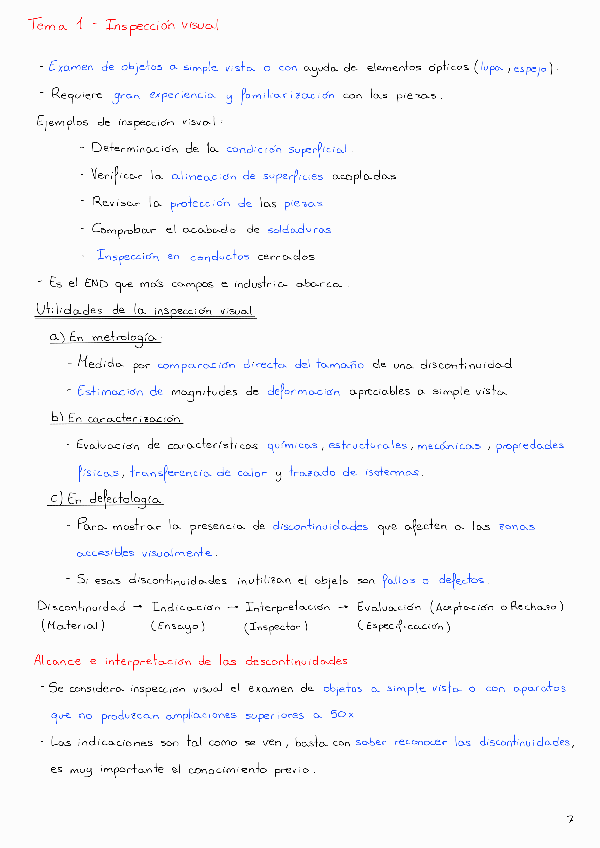 Tema 1 - Inspección visual
- Examen de objetos a simple vista o con ayuda de elementos ópticos (lupa, espejo).
- Requiere gran experiencia y familiarización con las piezas.
Ejemplos de inspección visual:
- Determinación de la condición superficial.
- Verificar la alineación de superficies acopladas
- Revisar la protección de las piezas
- Comprobar el acabado de soldaduras
- Inspección en conductos cerrados
- Es el END que más campos e industria abarca.
Utilidades de la inspección visual
a) En metrología:
- Medida por comparación directa del tamaño de una discontinuidad
- Estimación de magnitudes de deformación apreciables a simple vista
b) En caracterización
- Evaluación de características químicas, estructurales, mecánicas, propiedades
físicas, transferencia de calor y trazado de isotermas.
c) En defectología
- Para mostrar la presencia de discontinuidades que afecten a las zonas
accesibles visualmente.
- Si esas discontinuidades inutilizan el objeto son fallos o defectos.
Discontinuidad → Indicación → Interpretación → Evaluación (Aceptación o Rechazo)
(Material) (Ensayo) (Inspector) (Especificación)
Alcance e interpretación de las descontinuidades
- Se considera inspección visual el examen de objetos a simple vista o con aparatos
que no produzcan ampliaciones superiores a 50x
- Las indicaciones son tal como se ven, basta con saber reconocer las discontinuidades,
es muy importante el conocimiento previo.